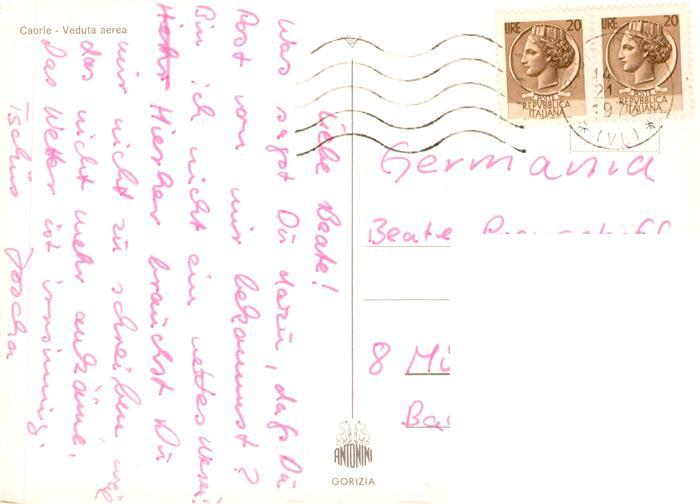 Caorle - Veduta aerea
Liebe Beate!
Was sagst Du dazu, daß Du
Post von mir bekommst?
Bin ich nicht ein nettes
Hierher brauchst Du
mir nicht zu schreiben, weil
das nicht mehr ankäme.
Das Wetter ist irrsinnig.
Tschüs Joscha
LIRE 20
POSTE
REPVBBLICA
ITALIANA
LIRE 20
POSTE
REPVBBLICA
ITALIANA
14
21
19
(VE)
Germania
Beate
8 Mü
Ba
ANTONINI
GORIZIA